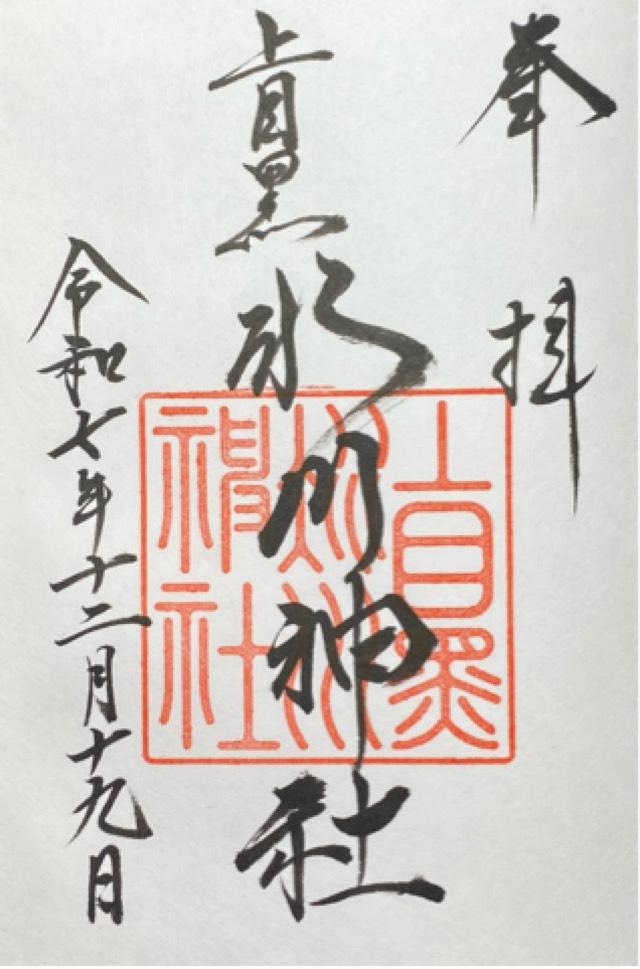 奉拝
上目黒氷川神社
令和七年十二月十九日
上目黒氷川神社